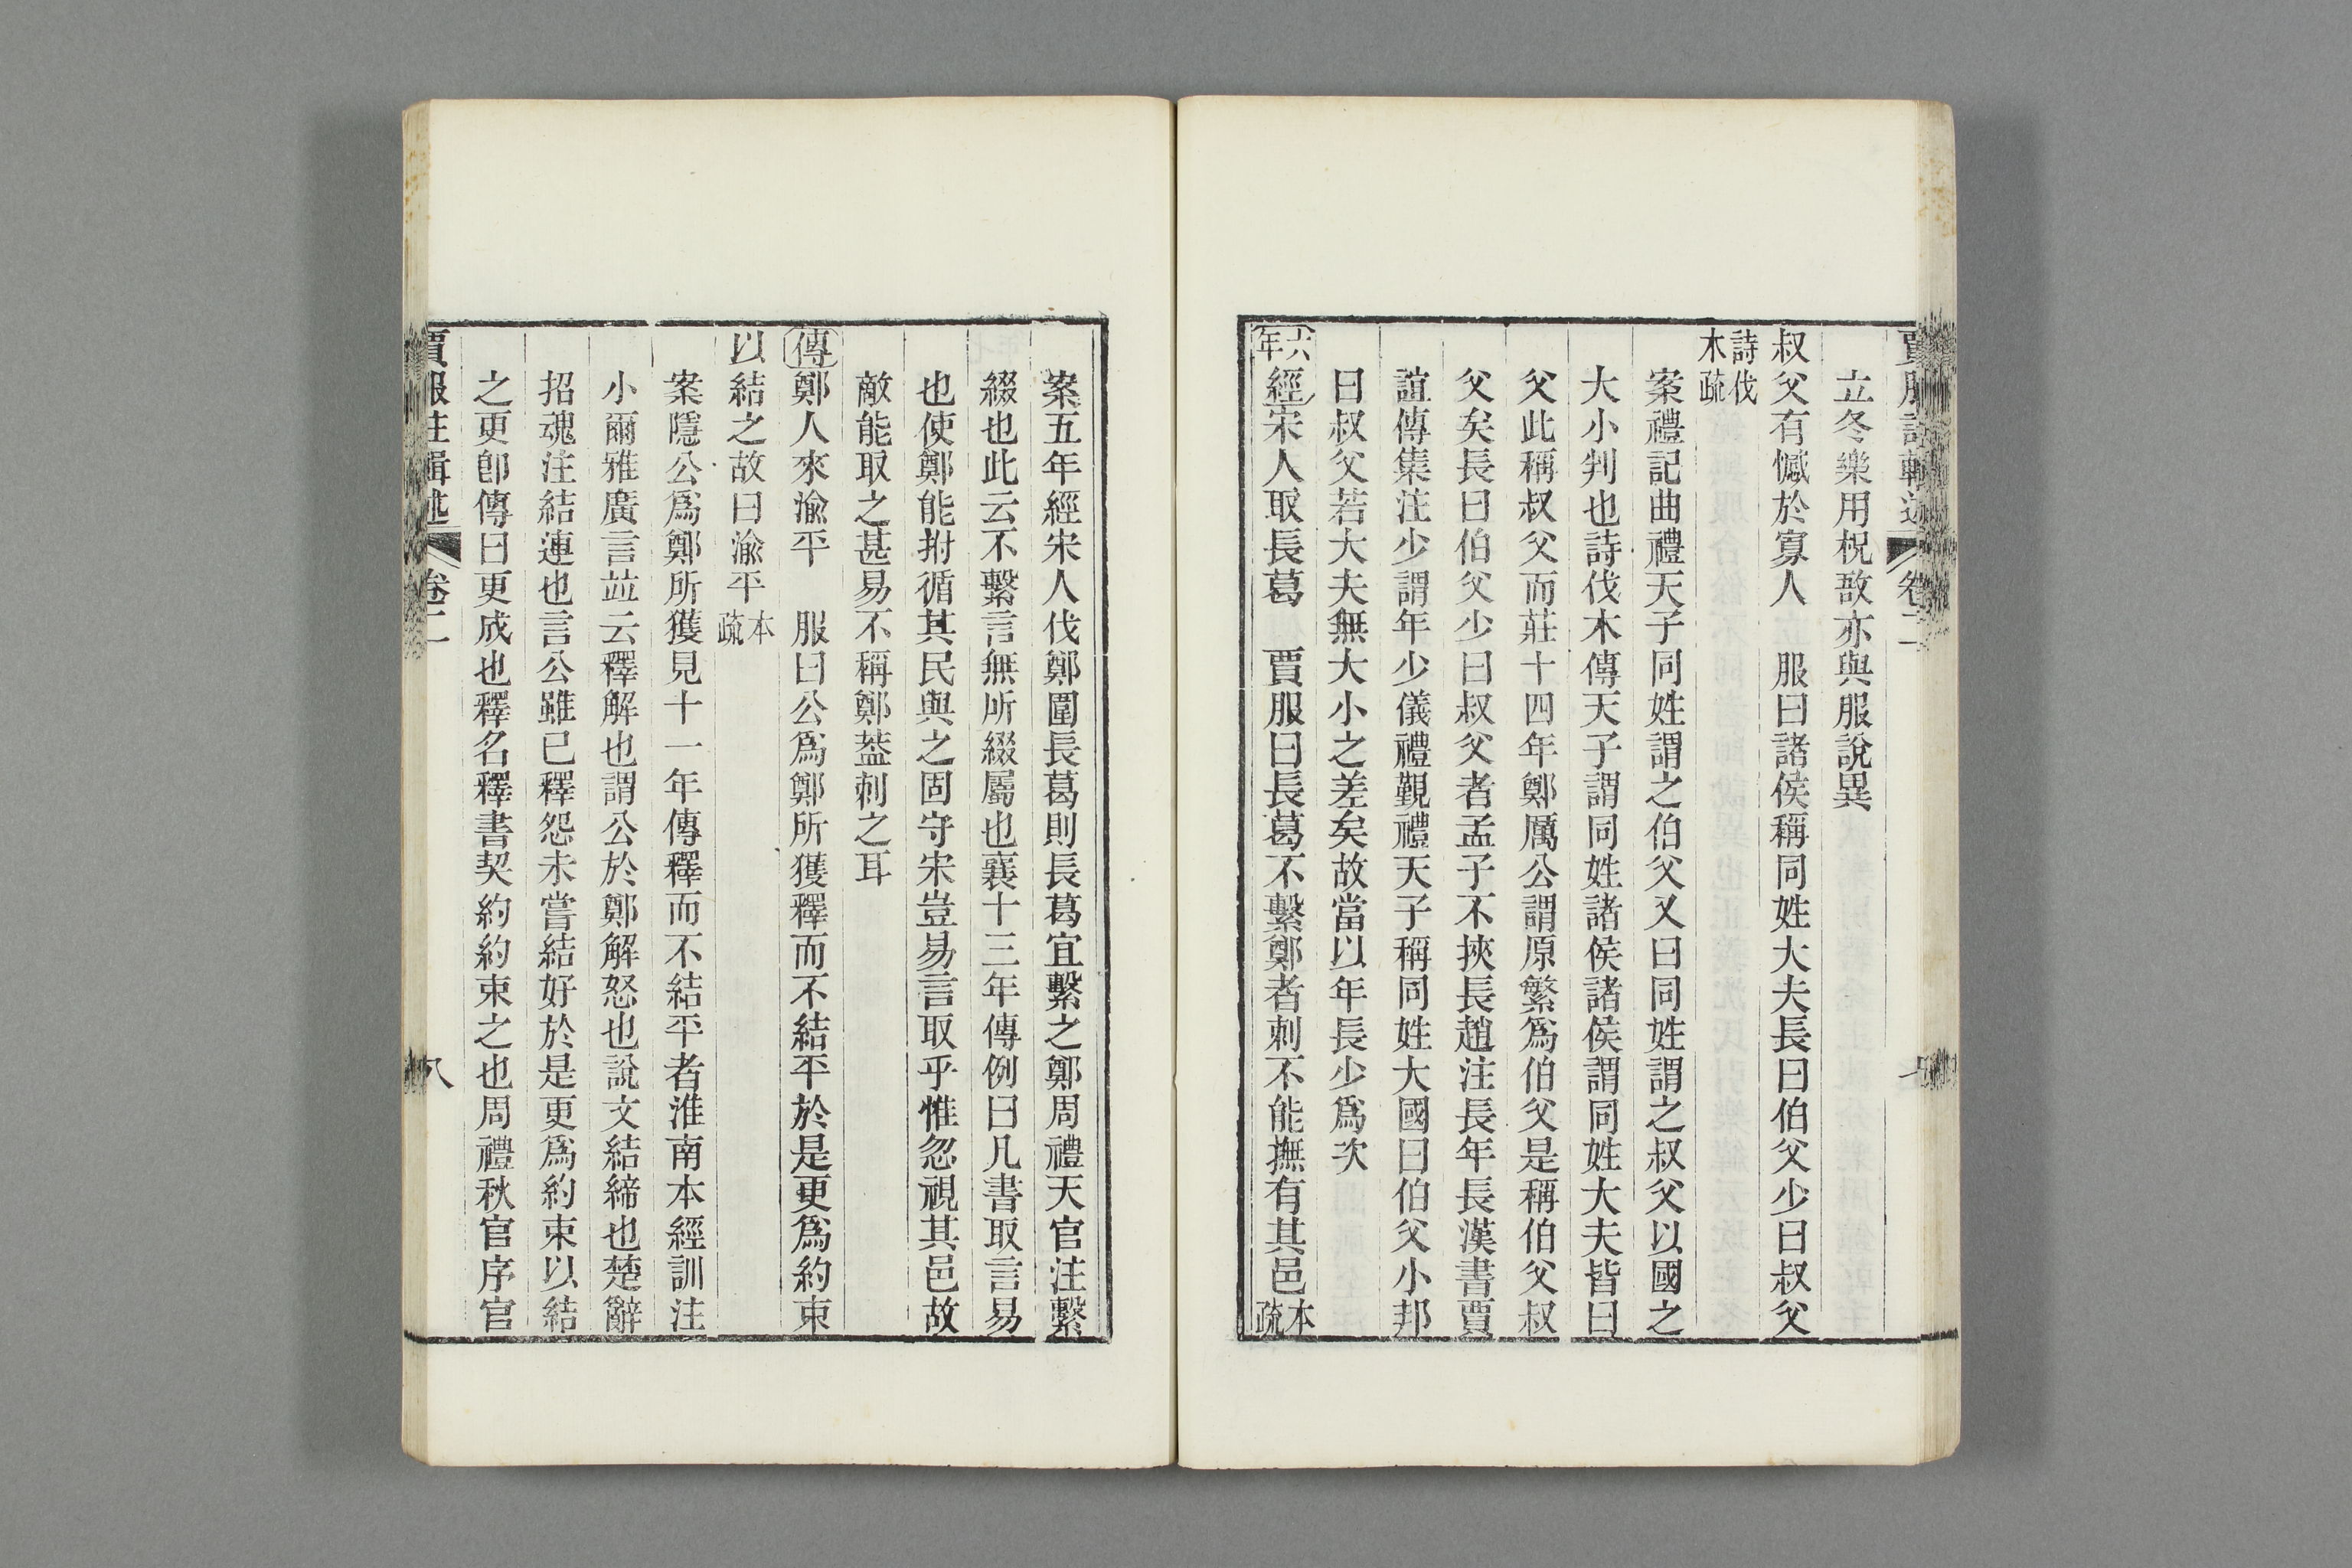 立冬樂用柷敔亦與服說異
叔父有憾於寡人　服曰諸侯稱同姓大夫長曰伯父少曰叔父
詩伐
木疏
案禮記曲禮天子同姓謂之伯父又曰同姓謂之叔父以國之
大小判也詩伐木傳天子謂同姓諸侯諸侯謂同姓大夫皆曰
父此稱叔父而莊十四年鄭厲公謂原繁爲伯父是稱伯父叔
父矣長曰伯父少曰叔父者孟子不挾長趙注長年長漢書賈
誼傳集注少謂年少儀禮覲禮天子稱同姓大國曰伯父小邦
曰叔父若大夫無大小之差矣故當以年長少爲次
六年經宋人取長葛　賈服曰長葛不繫鄭者刺不能撫有其邑本疏
案五年經宋人伐鄭圍長葛則長葛宜繫之鄭周禮天官注繫
綴也此云不繫言無所綴屬也襄十三年傳例曰凡書取言易
也使鄭能拊循其民與之固守宋豈易言取乎惟忽視其邑故
敵能取之甚易不稱鄭葢刺之耳
傳鄭人來渝平　服曰公爲鄭所獲釋而不結平於是更爲約束
以結之故曰渝平本疏
案隱公爲鄭所獲見十一年傳釋而不結平者淮南本經訓注
小爾雅廣言竝云釋解也謂公於鄭解怒也說文結締也楚辭
招魂注結連也言公雖已釋怨未嘗結好於是更爲約束以結
之更卽傳曰更成也釋名釋書契約約束之也周禮秋官序官
賈服注輯述
卷二
八